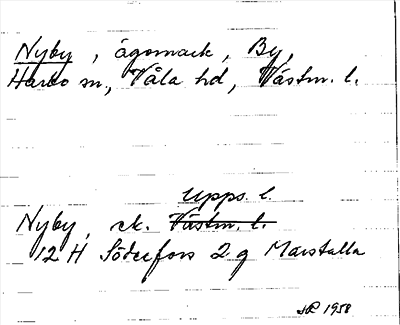 Nyby, ägomark, By,
Harbo sn, Våla hd, Västm. l.
Upps. l.
Nyby, ek. Västm. l.
12 H Söderfors 2 g Marstalla
1958